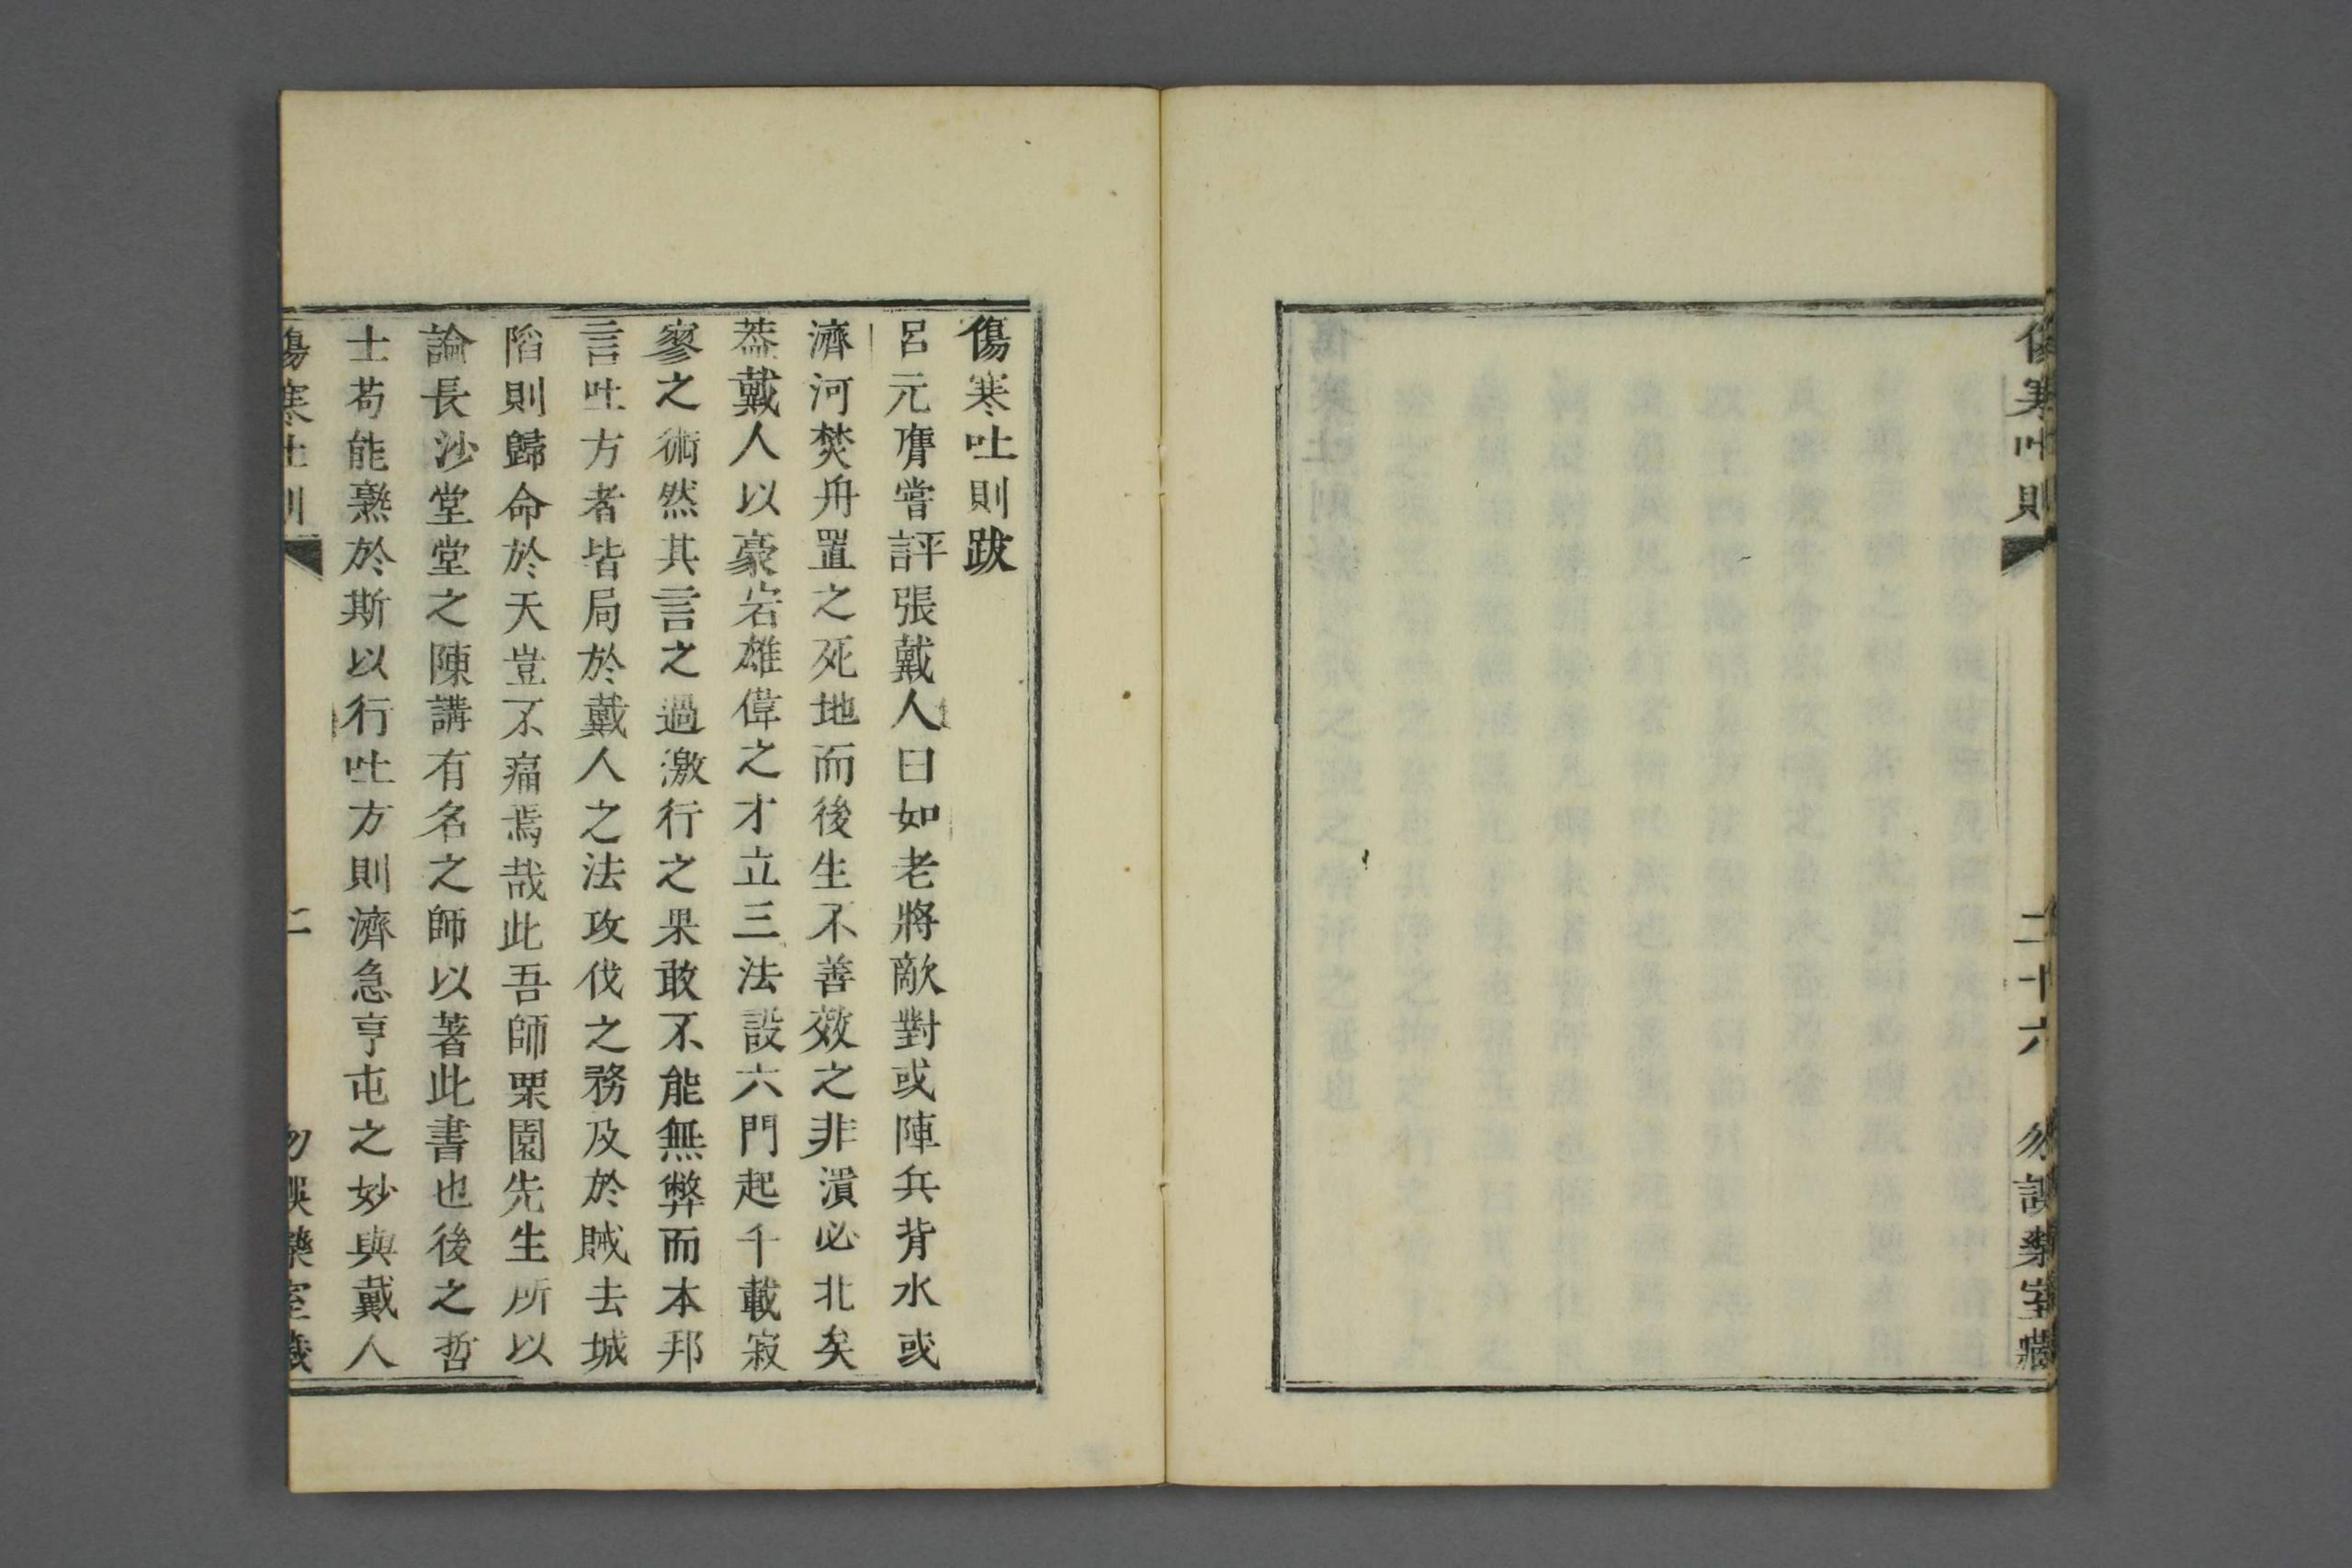 傷寒吐則
二十六
勿誤藥室藏
傷寒吐則跋
呂元膺嘗評張戴人曰如老將敵對或陣兵背水或
濟河焚舟置之死地而後生不善效之非潰必北矣
葢戴人以豪宕雄偉之才立三法設六門起千載寂
寥之術然其言之過激行之果敢不能無弊而本邦
言吐方者皆局於戴人之法攻伐之務及於賊去城
陷則歸命於天豈不痛焉哉此吾師栗園先生所以
論長沙堂堂之陳講有名之師以著此書也後之哲
士苟能熟於斯以行吐方則濟急亨屯之妙與戴人
傷寒吐則
一
勿誤藥室藏